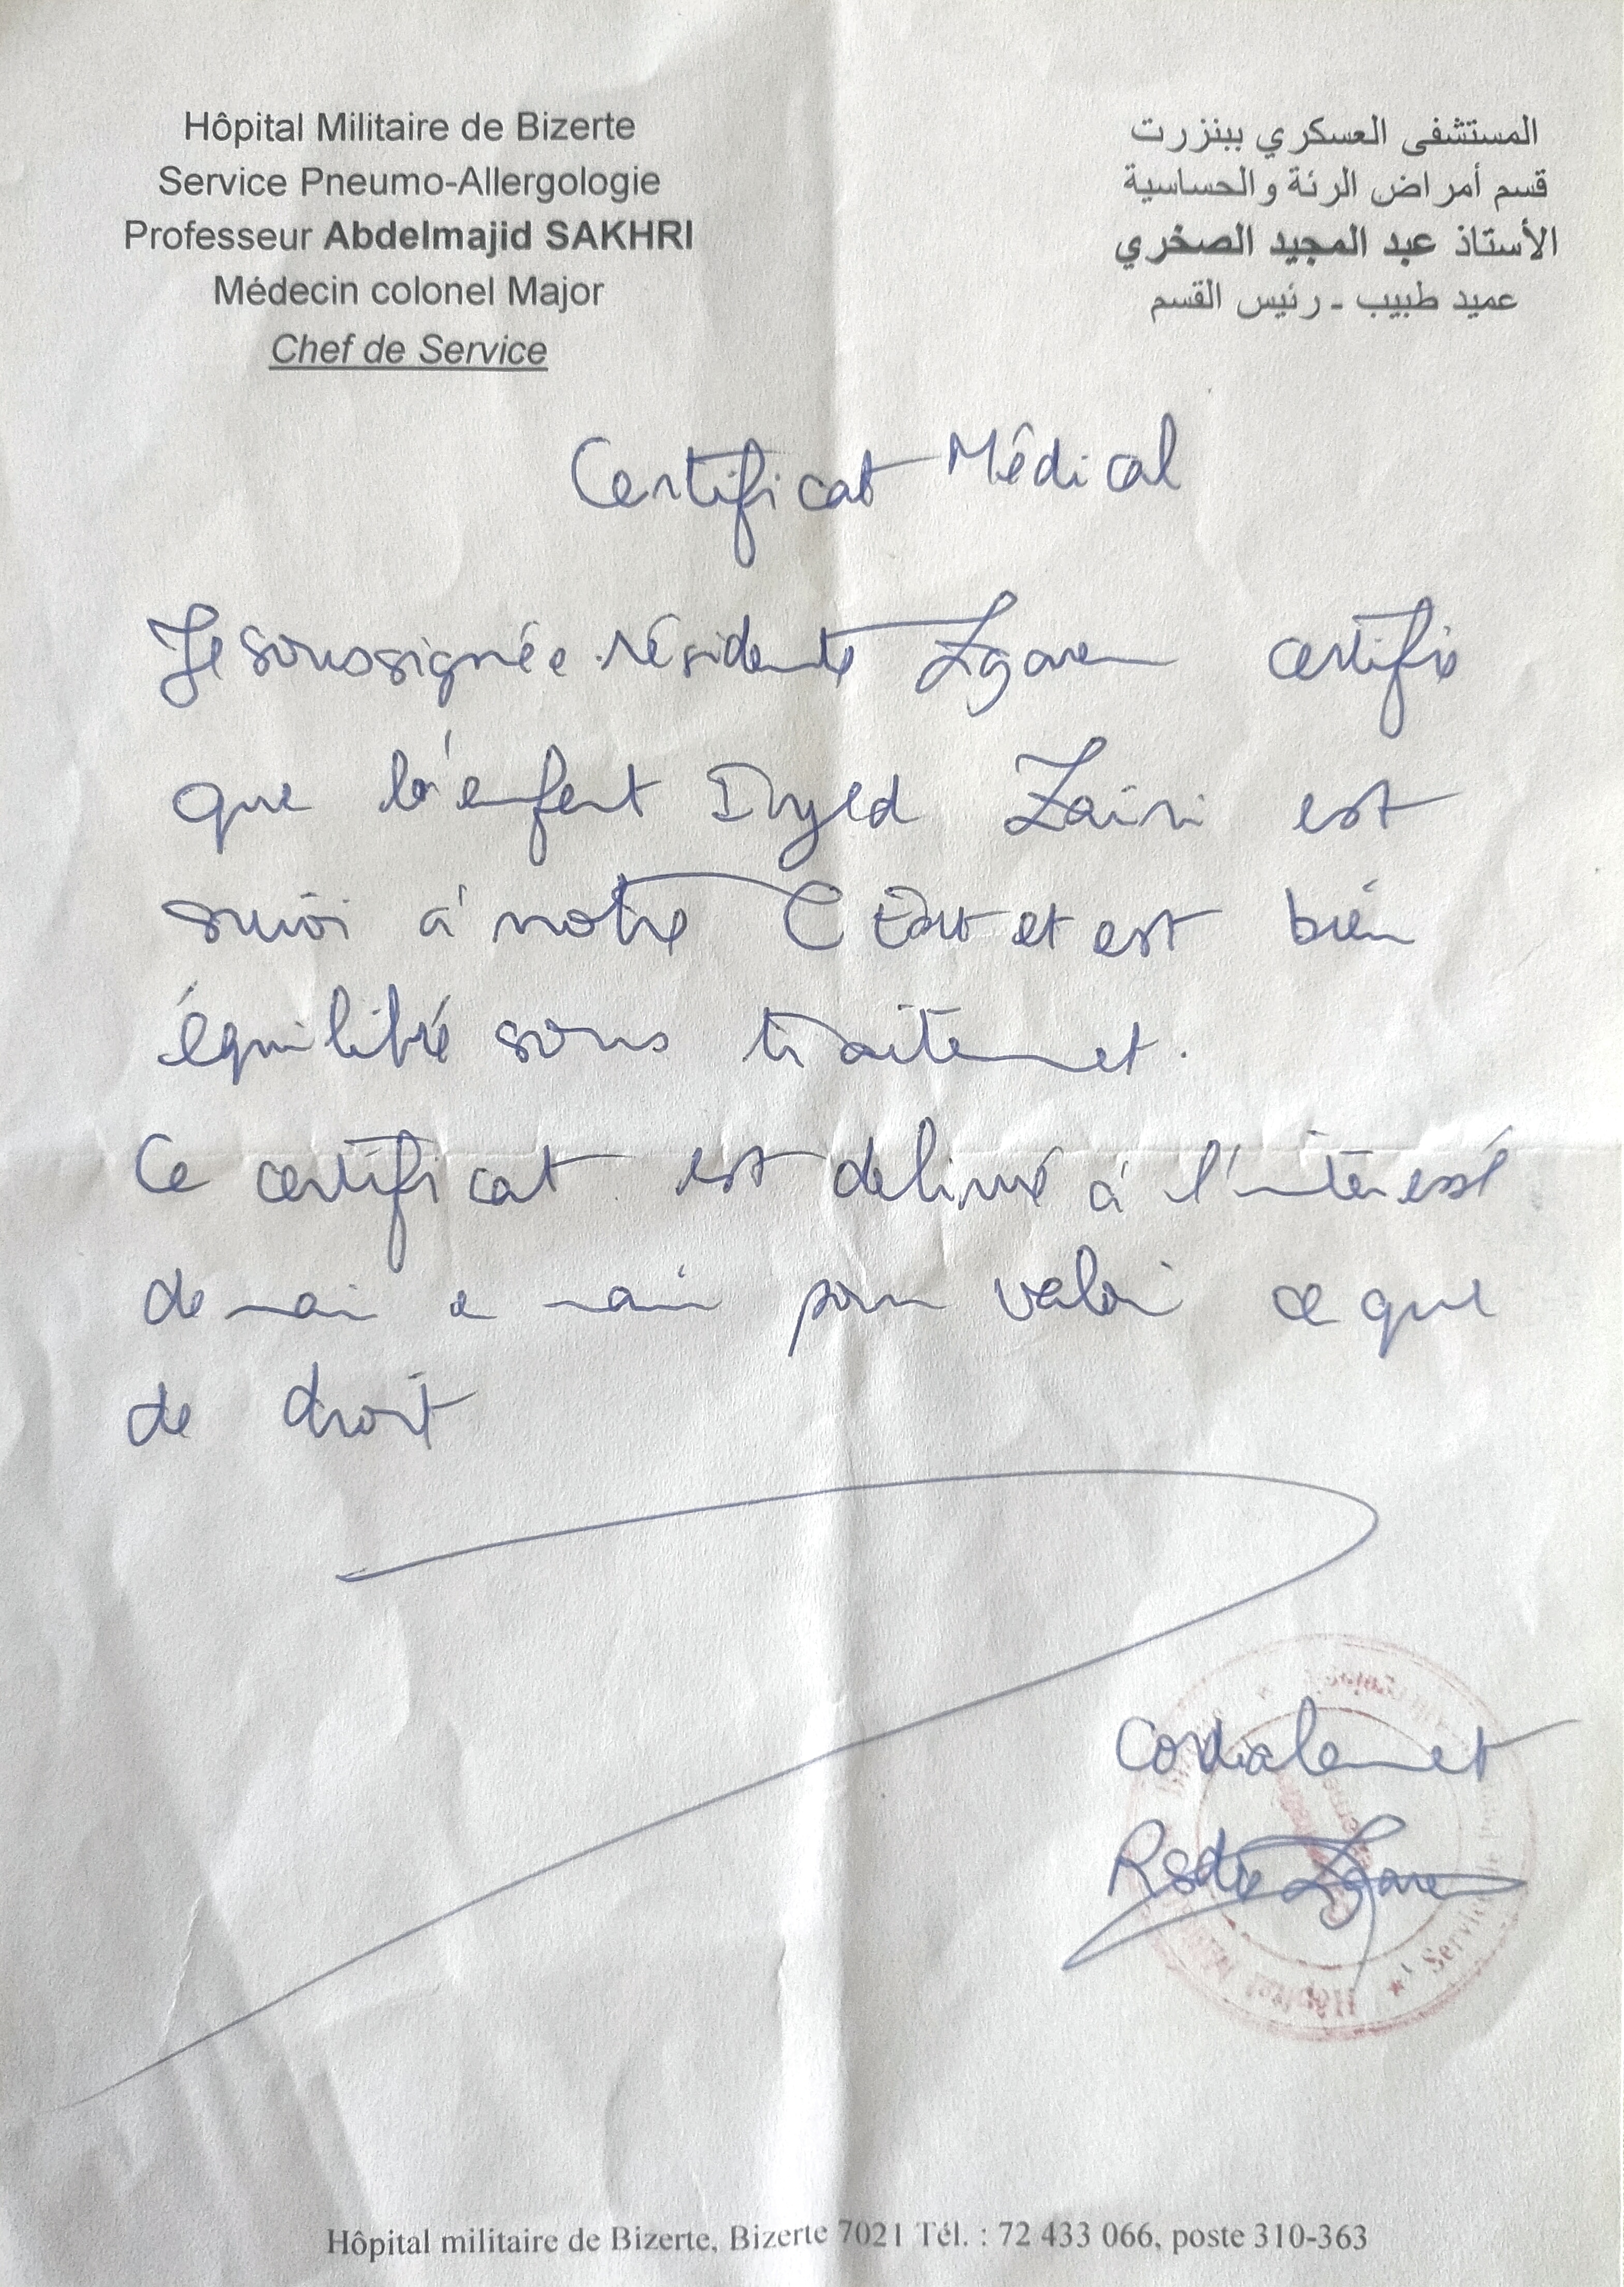 Hôpital Militaire de Bizerte
Service Pneumo-Allergologie
Professeur Abdelmajid SAKHRI
Médecin colonel Major
Chef de Service
المستشفى العسكري ببنزرت
قسم أمراض الرئة والحساسية
الأستاذ عبد المجيد الصخري
عميد طبيب - رئيس القسم
Certificat Médical
Je soussignée résidente Zgaren certifie
que l'enfant Iyed Zairi est
suivi à notre et est bien
équilibré sous traitement.
Ce certificat est delivré à l'intéressé
de main a main pour valoir ce que
de droit
Cordialement
Rsdte Zgaren
Hôpital
Service de
Hôpital militaire de Bizerte, Bizerte 7021 Tél. : 72 433 066, poste 310-363